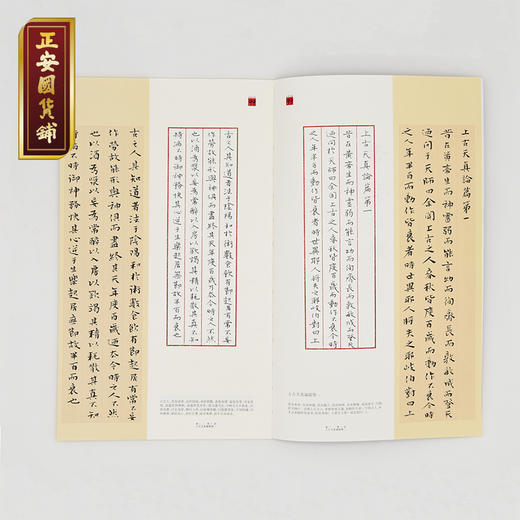 正安國貨鋪
上古天真論篇第一
昔在黃帝生而神靈弱而能言幼而徇齊長而敦敏成而登天
迺問于天師曰余聞上古之人春秋皆度百歲而動作不衰今時
之人年半百而動作皆衰者時世異耶人將失之耶岐伯對曰上
上古天真論篇第一
昔在黃帝生而神靈弱而能言幼而徇齊長而敦敏成而登天
迺問于天師曰余聞上古之人春秋皆度百歲而動作不衰今時
之人年半百而動作皆衰者時世異耶人將失之耶岐伯對曰上
古之人其知道者法于陰陽和於術數食飲有節起居有常不妄
作勞故能形與神俱而盡終其天年度百歲乃去今時之人不然
也以酒為漿以妄為常醉以入房以欲竭其精以耗散其真不知
持滿不時御神務快其心逆于生樂起居無節故半百而衰也
古之人其知道者法于陰陽和於術數食飲有節起居有常不妄
作勞故能形與神俱而盡終其天年度百歲乃去今時之人不然
也以酒為漿以妄為常醉以入房以欲竭其精以耗散其真不知
持滿不時御神務快其心逆于生樂起居無節故半百而衰也